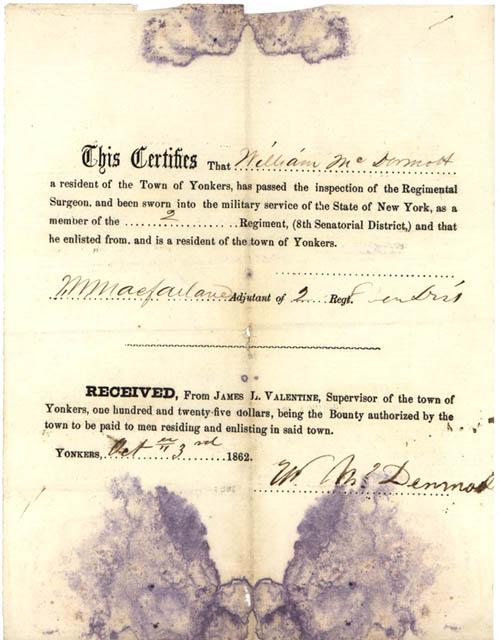 This Certifies That William Mc Dermott
a resident of the Town of Yonkers, has passed the inspection of the Regimental
Surgeon, and been sworn into the military service of the State of New York, as a
member of the ........2........ Regiment, (8th Senatorial District,) and that
he enlisted from, and is a resident of the town of Yonkers.
W Macfarlane Adjutant of 2 Regt. 8 en Dis't
RECEIVED, From JAMES L. VALENTINE, Supervisor of the town of
Yonkers, one hundred and twenty-five dollars, being the Bounty authorized by the
town to be paid to men residing and enlisting in said town.
YONKERS, Oct 3rd 1862.
W Mc Dermott